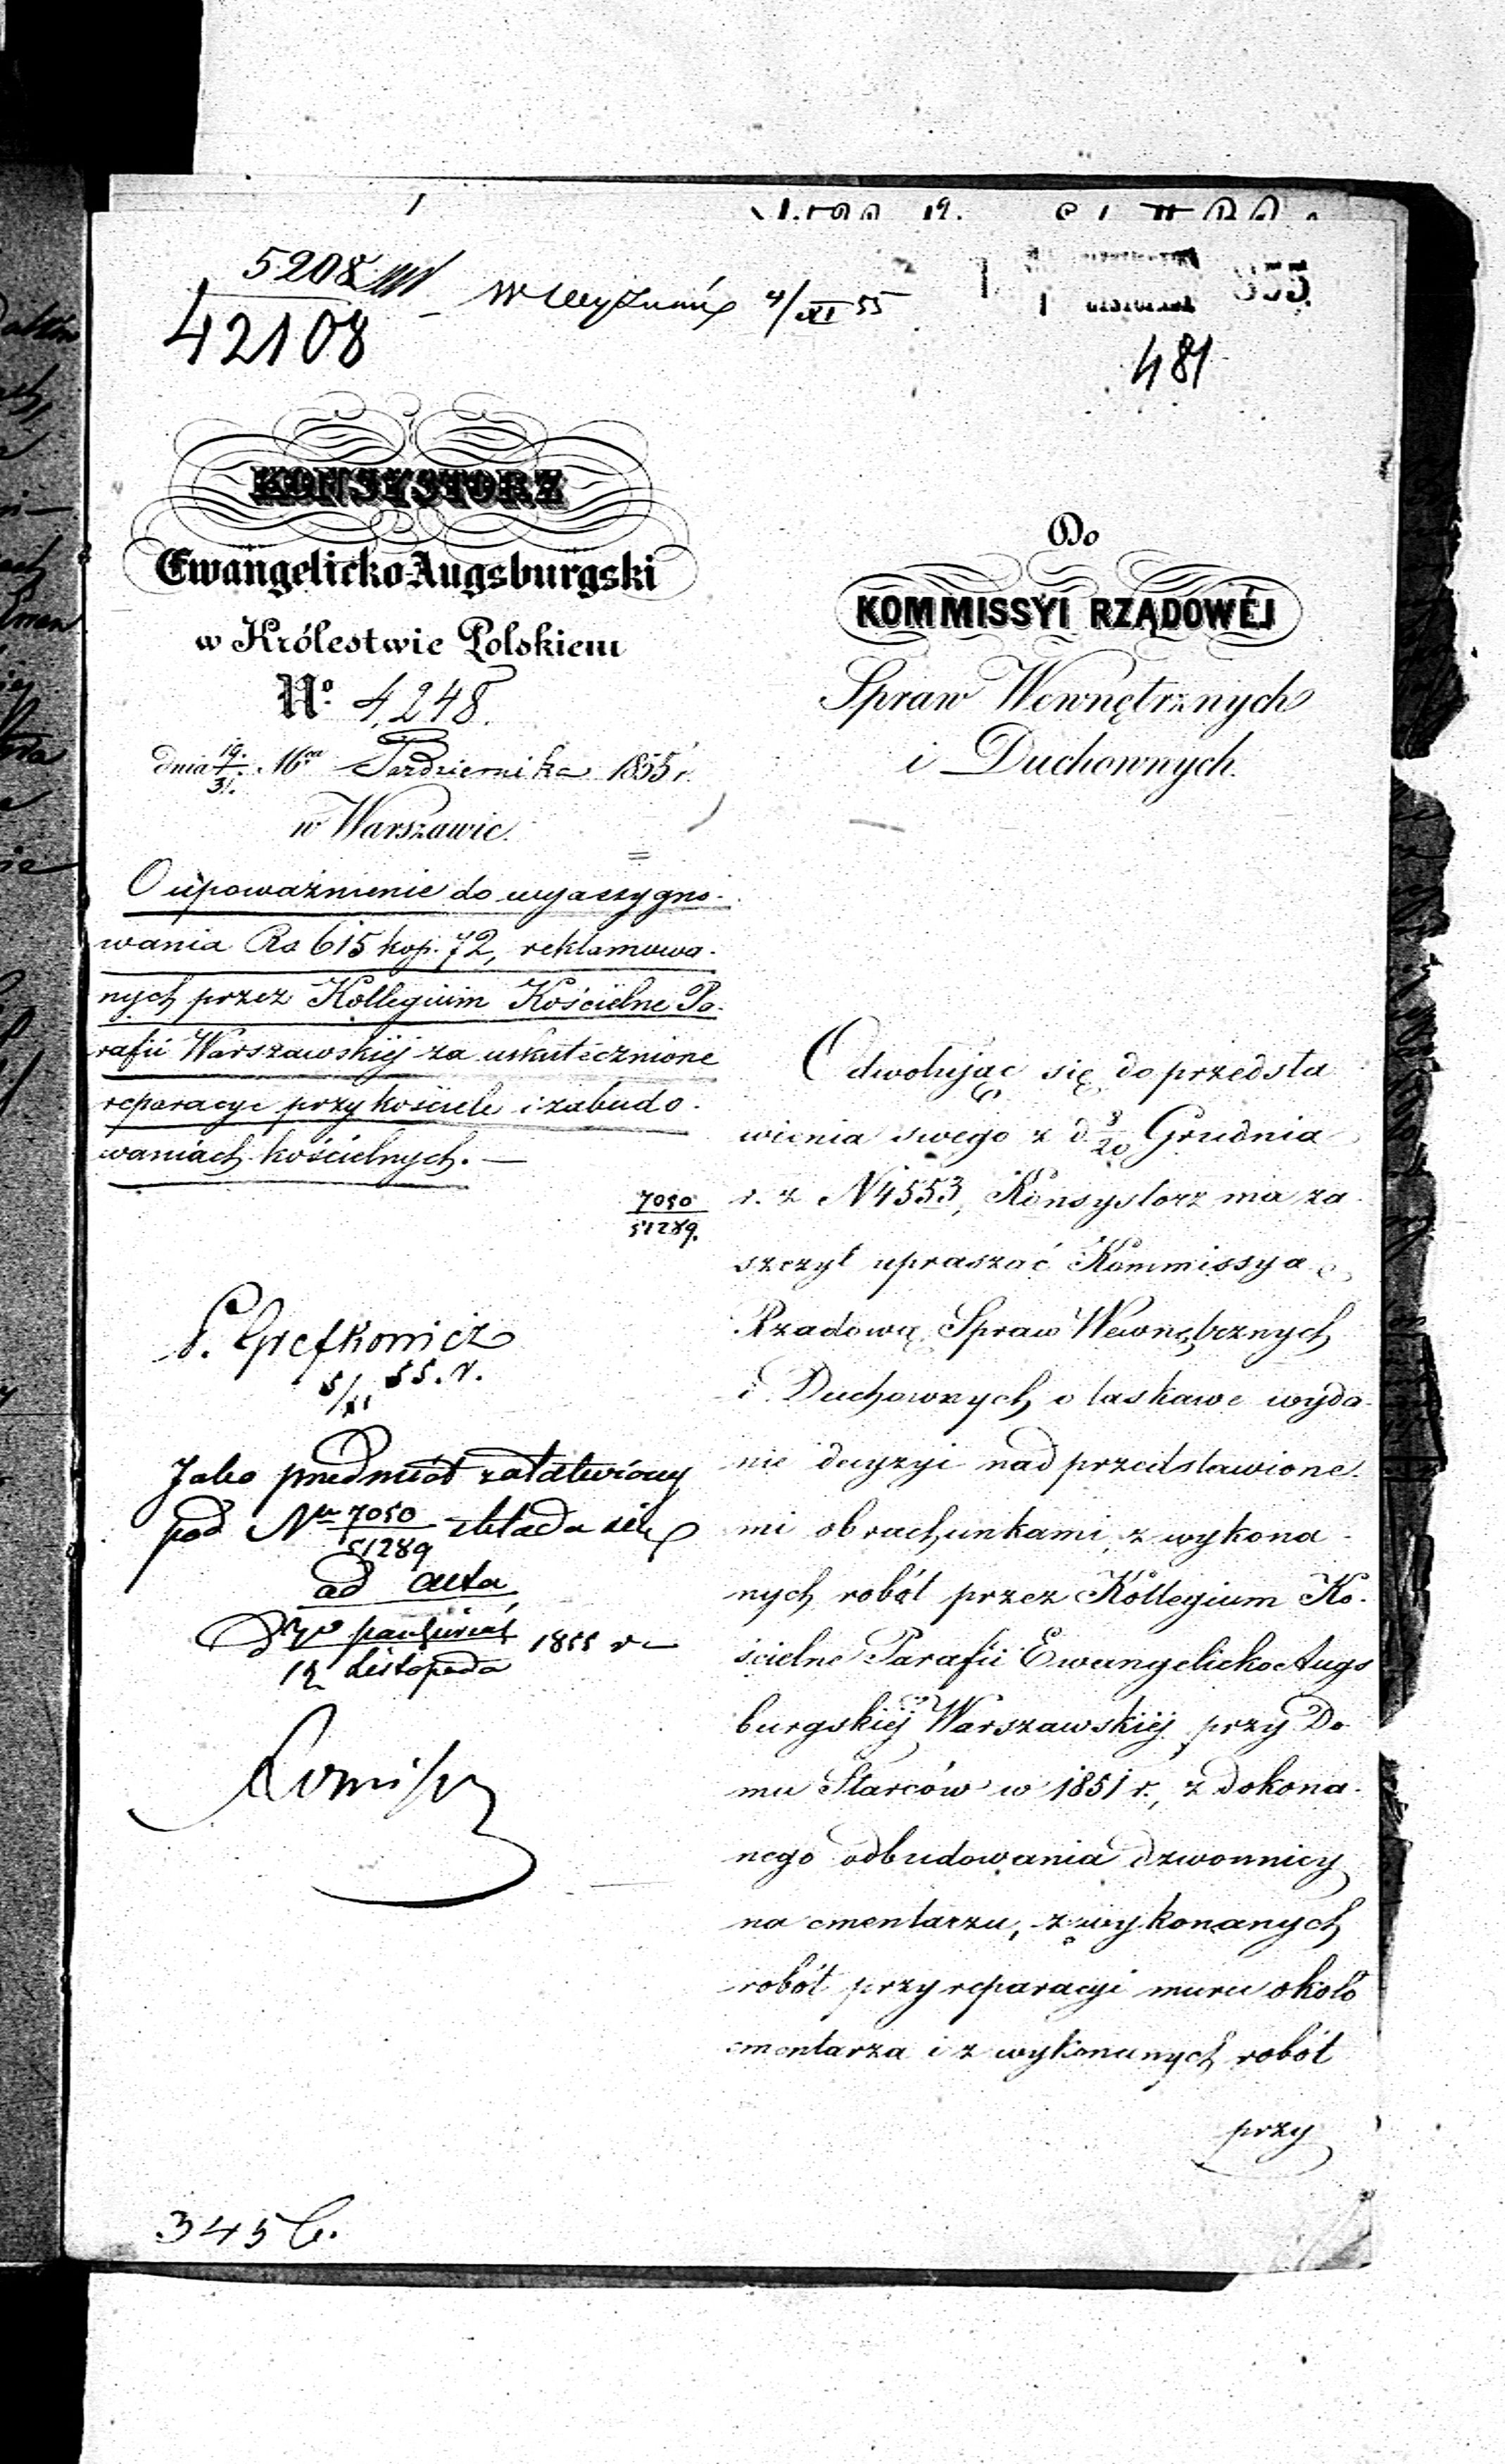 5208
42108
W Wyznań 4/XI 55
481
KONSYSTORZ
Ewangelicko-Augsburgski
w Królestwie Polskiem
No. 4,248.
dnia 19./31. Mca Pazdziernika 1855 r.
w Warszawie.
O upoważnienie do wyassygno-
wania Rs 615 kop. 72, reklamowa-
nych przez Kollegium Kościelne Pa-
rafii Warszawskiéj za uskutecznione
reparacye przy kościele i zabudo-
waniach kościelnych. —
7050
51289.
5/XI 55. r.
Jako przedmiot załatwiony
pod Nr 7050/51289 składa się
ad acta
12 Listopada 1855 r
345 b.
Do
KOMMISSYI RZĄDOWÉJ
Spraw Wewnętrznych
i Duchownych.
Odwołując się do przedsta
wienia swego z d. 8/20 Grudnia
r. z N 4553, Konsystorz ma za-
szczyt upraszać Kommissyą
Rządową Spraw Wewnętrznych
i Duchownych o łaskawe wyda-
nie decyzyi nad przedstawione-
mi obrachunkami, z wykona-
nych robót przez Kollegium Ko-
ścielne Parafii Ewangelicko Augs
burgskiéj Warszawskiéj przy Do
mu Starców w 1851 r., z dokona-
nego odbudowania dzwonnicy
na cmentarzu, z wykonanych
robót przy reparacyi muru około
cmentarza i z wykonanych robót
przy